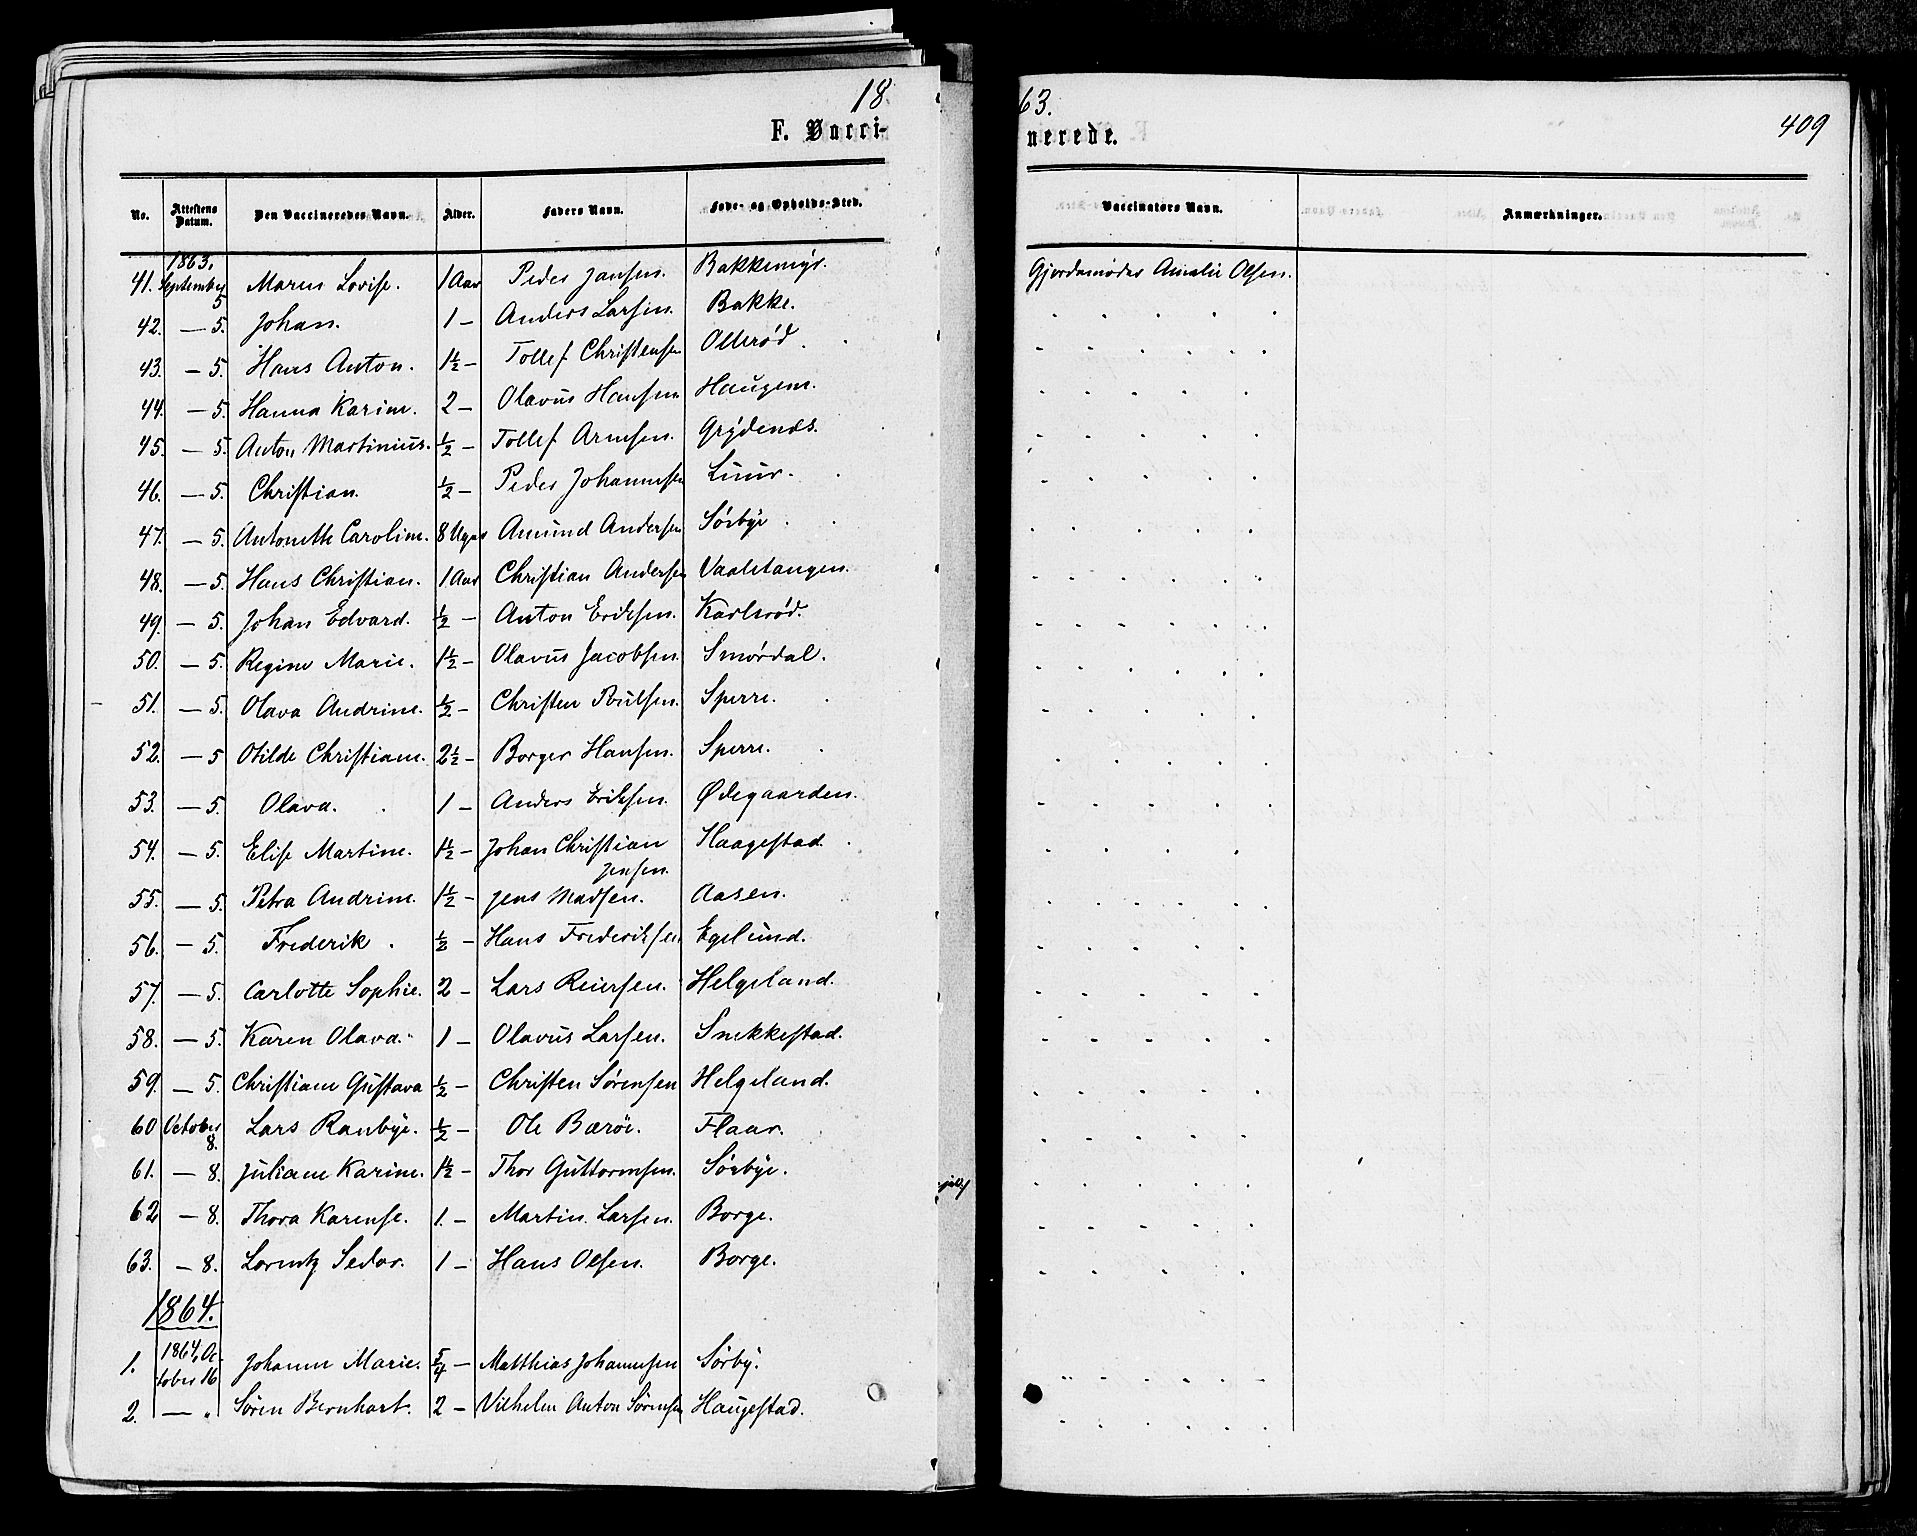 18
63.
409
F. Vacci-
nerede.
No. Attestens Datum. Den Vaccineredes Navn. Alder. Faders Navn. Føde- og Opholds-Sted. Vaccinators Navn. Anmærkninger.
1863.
41. September 5 Maren Lovise. 1 Aar Peder Jansen. Bakkemyr. Gjordemoder Amalie Olsen.
42. — 5. Johan. 1 — Anders Larsen. Bakke.
43. — 5. Hans Anton. 1½ — Tollef Christensen Ollerød.
44. — 5. Hanna Karine. 2 — Olavus Hansen Haugen.
45. — 5. Anton Martinius. ½ — Tollef Arnesen. Grydenæs.
46. — 5. Christian. ½ — Peder Johannesen Luur.
47. — 5. Antonette Caroline. 8 Uger Amund Andersen Sørbye.
48. — 5. Hans Christian. 1 Aar Christian Andersen Vaaletangen.
49. — 5. Johan Edvard. ½ — Anton Eriksen. Karlsrød.
50. — 5. Regine Marie. 1½ — Olavus Jacobsen. Smørdal.
51. — 5. Olava Andrine. ½ — Christen Poulsen. Sperre.
52. — 5 Otilde Christiane. 2½ — Borger Hansen. Sperre.
53. — 5. Olava. 1 — Anders Eriksen. Ødegaarden.
54. — 5. Elise Martine. 1½ — Johan Christian Haagestad.
Jensen.
55. — 5. Petra Andrine. 1½ — Jens Madsen. Aasen.
56. — 5. Frederik. ½ — Hans Frederiksen Egelund.
57. — 5. Carlotte Sophie. 2 — Lars Reiersen. Helgeland.
58. — 5. Karen Olava. 1 — Olavus Larsen. Snekkestad.
59. — 5. Christiane Gustava ½ — Christen Sørensen Helgeland.
60 October 8. Lars Ranbye. ½ — Ole Barøe. Flaar.
61. — 8. Juliane Karine. 1½ — Thor Guttormsen. Sørbye.
62 — 8. Thora Karense. 1. — Martin Larsen. Borge.
63. — 8. Lorentz Sedor. 1 — Hans Olsen. Borge.
1864.
1. 1864, October 16 Johanne Marie. 5/4 — Matthias Johannesen Sørby.
2. — „ Søren Bernhart. 2 — Vilhelm Anton Sørensen Haugestad.